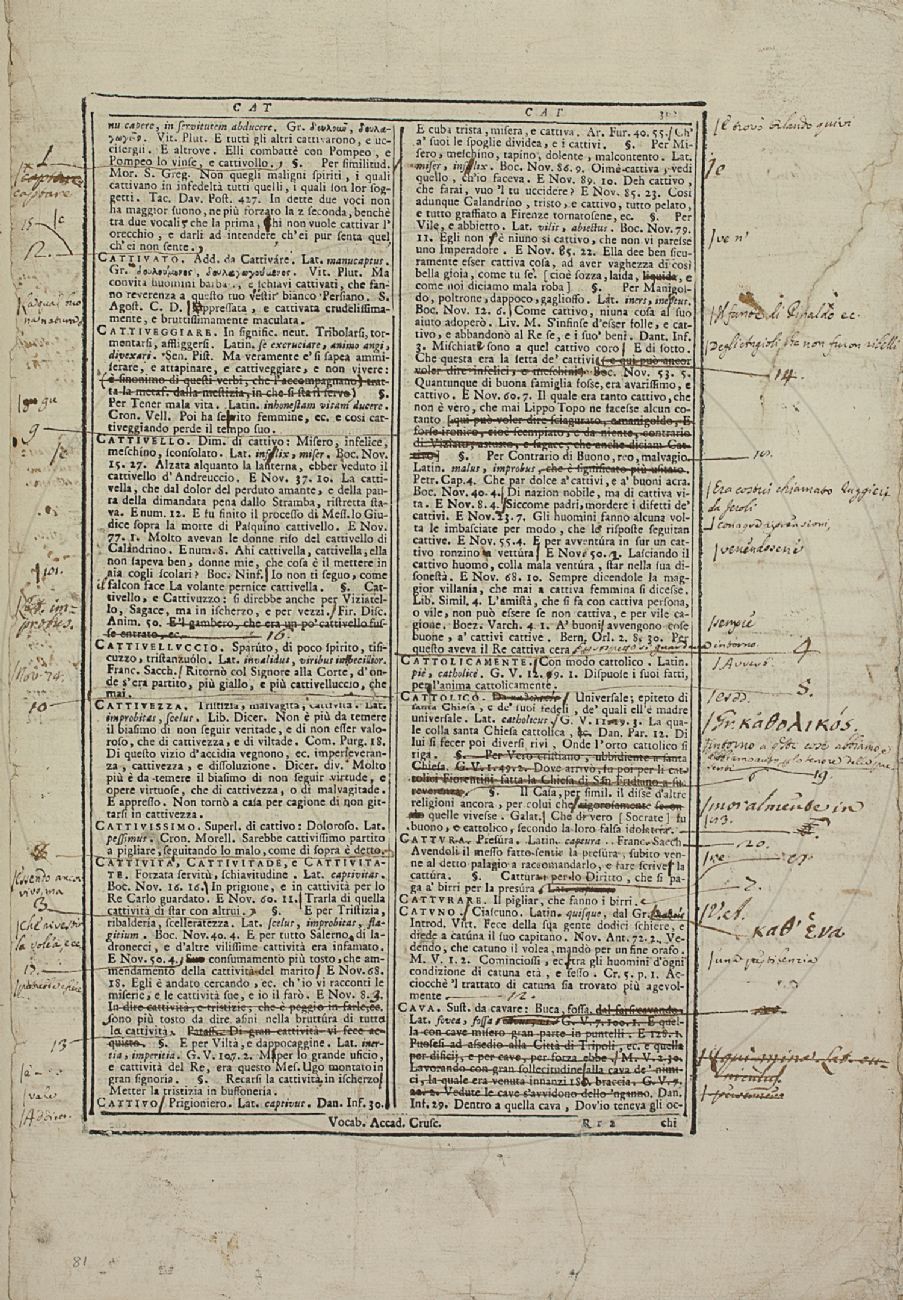 CAT
nu capere, in servitutem abducere. Gr.
Vit. Plut. E tutti gli altri cattivarono, e uc-
cisergli. E altrove. Elli combattè con Pompeo, e
Pompeo lo vinse, e cattivollo. §. Per similitud.
Mor. S. Greg. Non quegli maligni spiriti, i quali
cattivano in infedeltà tutti quelli, i quali son lor sog-
getti. Tac. Dav. Post. 427. In dette due voci non
ha maggior suono, ne più forzato la z seconda, benchè
tra due vocali, che la prima, chi non vuole cattivar l'
orecchio, e darli ad intendere ch'ei pur senta quel
ch'ei non sente.
CATTIVATO. Add. da Cattivare. Lat. manucaptus.
Gr. Vit. Plut. Ma
convita huomini barba., e schiavi cattivati, che fan-
no reverenza a questo tuo vestir bianco Persiano. S.
Agost. C. D. Oppressata, e cattivata crudelissima-
mente, e bruttissimente maculata.
CATTIVEGGIARE. In signific. neut. Tribolarsi, tor-
mentarsi, affliggersi. Latin. se excruciare, animo angi,
divexari. Sen. Pist. Ma veramente e' si sapea ammi-
serare, e attapinare, e cattiveggiare, e non vivere:
(è sinonimo di questi verbi, che l'accompagnano) trat-
ta la metaf. dalla mestizia, in che si sta il servo) §.
Per Tener mala vita. Latin. inhonestam vitam ducere.
Cron. Vell. Poi ha servito femmine, ec. e così cat-
tiveggiando perde il tempo suo.
CATTIVELLO. Dim. di cattivo: Misero, infelice,
meschino, sconsolato. Lat. infelix, miser. Boc. Nov.
15. 27. Alzata alquanto la lanterna, ebber veduto il
cattivello d'Andreuccio. E Nov. 37. 10. La catti-
vella, che dal dolor del perduto amante, e della pau-
ra della dimandata pena dallo Stramba, ristretta sta-
va. E num. 12. E fu finito il processo di Mess. lo Giu-
dice sopra la morte di Pasquino cattivello. E Nov.
77. 1. Molto avevan le donne riso del cattivello di
Calandrino. E num. 8. Ahi cattivella, cattivella, ella
non sapeva ben, donne mie, che cosa è il mettere in
aia cogli scolari? Boc. Ninf. Io non ti seguo, come
il falcon face La volante pernice cattivella. §. Cat-
tivello, e Cattivuzzo: si direbbe anche per Viziatel-
lo, Sagace, ma in ischerzo, e per vezzi. Fir. Disc.
Anim. 50. E'l gambero, che era un po' cattivello fus-
se entrato, ec. 16.
CATTIVELLUCCIO. Sparuto, di poco spirito, tisi-
cuzzo, tristanzuolo. Lat. invalidus, viribus imbecillior.
Franc. Sacch. Ritornò col Signore alla Corte, d'on-
de s'era partito, più giallo, e più cattivelluccio, che
mai.
CATTIVEZZA. Tristizia, malvagità, cattività. Lat.
improbitas, scelus. Lib. Dicer. Non è più da temere
il biasimo di non seguir veritade, e di non esser valo-
roso, che di cattivezza, e di viltade. Com. Purg. 18.
Di questo vizio d'accidia vegnono, ec. imperseveran-
za, cattivezza, e dissoluzione. Dicer. div. Molto
più è da temere il biasimo di non seguir virtude, e
opere virtuose, che di cattivezza, o di malvagitade.
E appresso. Non tornò a casa per cagione di non git-
tarsi in cattivezza.
CATTIVISSIMO. Superl. di cattivo: Doloroso. Lat.
pessimus. Cron. Morell. Sarebbe cattivissimo partito
a pigliare, seguitando lo malo, come di sopra è detto.
CATTIVITÀ, CATTIVITADE, e CATTIVITA-
TE. Forzata servitù, schiavitudine. Lat. captivitas.
Boc. Nov. 16. 16. In prigione, e in cattività per lo
Re Carlo guardato. E Nov. 60. 11. Trarla di quella
cattività di star con altrui. §. E per Tristizia,
ribalderia, scelleratezza. Lat. scelus, improbitas, fla-
gitium. Boc. Nov. 40. 4. E per tutto Salerno, di la-
dronecci, e d'altre vilissime cattività era infamato.
E Nov. 50. 4. Suo consumamento più tosto, che am-
mendamento della cattività del marito. E Nov. 68.
18. Egli è andato cercando, ec. ch'io vi racconti le
miserie, e le cattività sue, e io il farò. E Nov. 8. 3.
In dire cattività, e tristizie, che è peggio in farle, ec.
sono più tosto da dire asini nella bruttura di tutte
la cattività. Pataff. Di gran cattività vi fece ac-
quisto. §. E per Viltà, e dappocaggine. Lat. iner-
tia, imperitia. G. V. 107. 2. Ma per lo grande uficio,
e cattività del Re, era questo Mess. Ugo montato in
gran signoria. §. Recarsi la cattività in ischerzo,
Metter la tristizia in buffoneria.
CATTIVO. Prigioniero. Lat. captivus. Dan. Inf. 30.
CAT
E cuba trista, misera, e cattiva. Ar. Fur. 40. 55. Ch'
a' suoi le spoglie dividea, e i cattivi. §. Per Mi-
sero, meschino, tapino, dolente, malcontento. Lat.
miser, infelix. Boc. Nov. 86. 9. Oimè cattiva, vedi
quello, ch'io faceva. E Nov. 89. 10. Deh cattivo,
che farai, vuo 'l tu uccidere? E Nov. 85. 23. Così
adunque Calandrino, tristo, e cattivo, tutto pelato,
e tutto graffiato a Firenze tornatosene, ec. §. Per
Vile, e abbietto. Lat. vilis, abiectus. Boc. Nov. 79.
11. Egli non v'è niuno sì cattivo, che non vi paresse
uno Imperadore. E Nov. 85. 22. Ella dee ben sicu-
ramente esser cattiva cosa, ad aver vaghezza di così
bella gioia, come tu se'. [cioè sozza, laida, liquida, e
come noi diciamo mala roba] §. Per Manigol-
do, poltrone, dappoco, gaglioffo. Lat. iners, ineptus.
Boc. Nov. 12. 6. Come cattivo, niuna cosa al suo
aiuto adoperò. Liv. M. S'infinse d'esser folle, e cat-
tivo, e abbandonò al Re se, e i suo' beni. Dant. Inf.
3. Mischiate sono a quel cattivo coro. E di sotto.
Che questa era la setta de' cattivi (e qui può ancor
voler dire infelici, e meschini) Boc. Nov. 53. 5.
Quantunque di buona famiglia fosse, era avarissimo, e
cattivo. E Nov. 60. 7. Il quale era tanto cattivo, che
non è vero, che mai Lippo Topo ne facesse alcun co-
tanto [qui può voler dire sciagurato, e manigoldo, E
forse ironico, cioè scempiato, e da niente, contrario
di Viziato, astuto, e sagace, che anche diciam Cat-
tivo] §. Per Contrario di Buono, reo, malvagio.
Latin. malus, improbus, che è significato più usitato.
Petr. Cap. 4. Che par dolce a' cattivi, e a' buoni acra.
Boc. Nov. 40. 4. Di nazion nobile, ma di cattiva vi-
ta. E Nov. 8. 4. Siccome padri, mordere i difetti de'
cattivi. E Nov. 23. 7. Gli huomini fanno alcune vol-
te le imbasciate per modo, che le risposte seguitan
cattive. E Nov. 55. 4. E per avventura in sur un cat-
tivo ronzino a vettura. E Nov. 50. 3. Lasciando il
cattivo huomo, colla mala ventura, star nella sua di-
sonestà. E Nov. 68. 10. Sempre dicendole la mag-
gior villania, che mai a cattiva femmina si dicesse.
Lib. Simil. 4. L'amistà, che si fa con cattiva persona,
o vile, non può essere se non cattiva, e per vile ca-
gione. Boez. Varch. 4. 1. A' buoni avvengono cose
buone, a' cattivi cattive. Bern. Orl. 2. 8. 30. Per
questo aveva il Re cattiva cera
CATTOLICAMENTE. Con modo cattolico. Latin.
piè, catholicè. G. V. 12. 69. 1. Dispuose i suoi fatti,
per l'anima cattolicamente.
CATTOLICO. Universale; epiteto di
santa Chiesa, e de' suoi fedeli, de' quali ell'è madre
universale. Lat. catholicus. G. V. 11. 19. 3. La qua-
le colla santa Chiesa cattolica, &c. Dan. Par. 12. Di
lui si fecer poi diversi rivi, Onde l'orto cattolico si
riga. §. Per Vero cristiano, ubbidiente a santa
Chiesa. G. V. 1. 49. 2. Dove arrivò, fu poi per li cat-
tolici Fiorentini, fatta la Chiesa di San Fridiano a su
reverenza. §. Il Casa, per simil. il disse d'altre
religioni ancora, per colui che rigorosamente secon-
do quelle vivesse. Galat. Che di vero [Socrate] fu
buono, e cattolico, secondo la loro falsa idolatria.
CATTURA. Presura. Latin. captura. Franc. Sacch.
Avendoli il messo fatto sentir la presura, subito ven-
ne al detto palagio a raccomandarlo, e fare scriver la
cattura. §. Cattura: per lo Diritto, che si pa-
ga a' birri per la presura
CATTURARE. Il pigliar, che fanno i birri.
CATUNO. Ciascuno. Latin. quisque, dal Gr.
Introd. Virt. Fece della sua gente dodici schiere, e
diede a catuna il suo capitano. Nov. Ant. 72. 2. Ve-
dendo, che catuno il volea, mandò per un fine orafo.
M. V. 1. 2. Cominciossi, ec. tra gli huomini d'ogni
condizione di catuna età, e sesso. Cr. 5. p. 1. Ac-
ciocchè 'l trattato di catuna sia trovato più agevol-
mente 12.
CAVA. Sust. da cavare: Buca, fossa, dal farsi cavando.
Lat. fovea, fossa G. V. 7. 100. 1. E quel-
la con cave misero gran parte in puntelli. E 128. 1.
Puosesi ad assedio alla Città di Tripoli, ec. e quella
per dificj, e per cave, per forza ebbe. M. V. 2. 30.
Lavorando con gran sollecitudine alla cava de' nimi-
ci, la quale era venuta innanzi 180. braccia. G. V. 7.
22. 2. Vedute le cave s'avvidono dello 'nganno. Dan.
Inf. 29. Dentro a quella cava, Dov'io teneva gli oc-
Vocab. Accad. Crusc.
R r 2
chi
captare
15
12.
9
101.
10
3
13
il trovò Orlando quivi
ve n'
14.
10.
Era costui chiamato Ruggieri
venendosene
sempre
4
5.
Gr. καθολικός.
19.
moralmente in
20.
7.
καθ' ἕνα
una pestilenzia
81